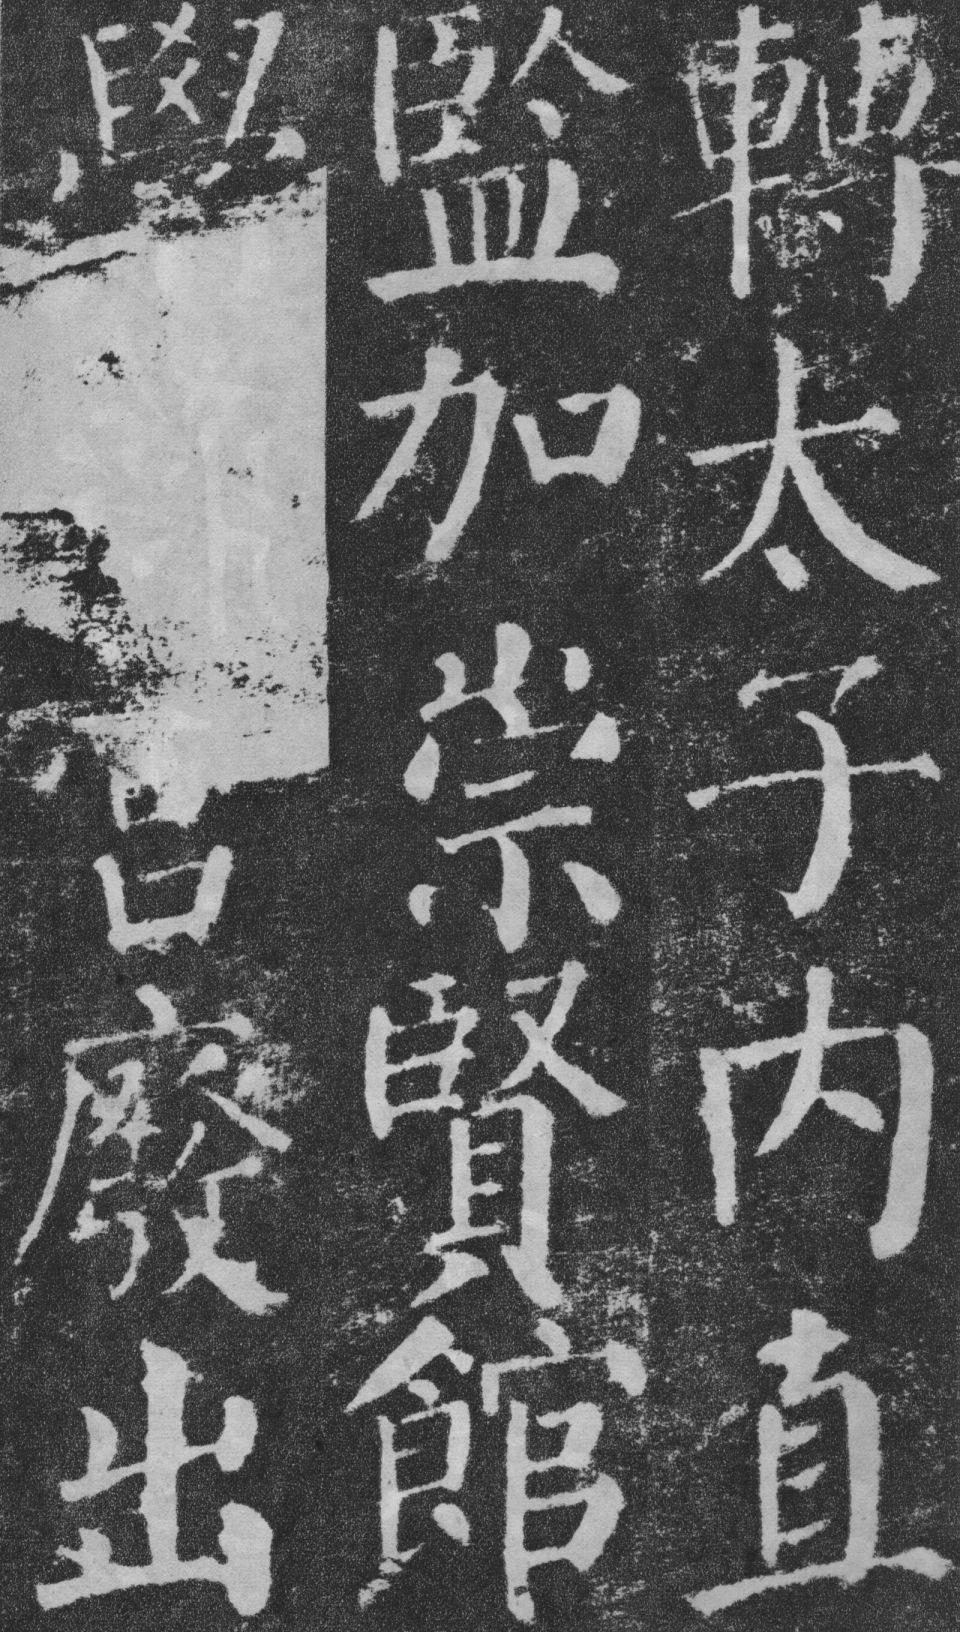 轉太子内直
監加崇賢館
學宫廢出